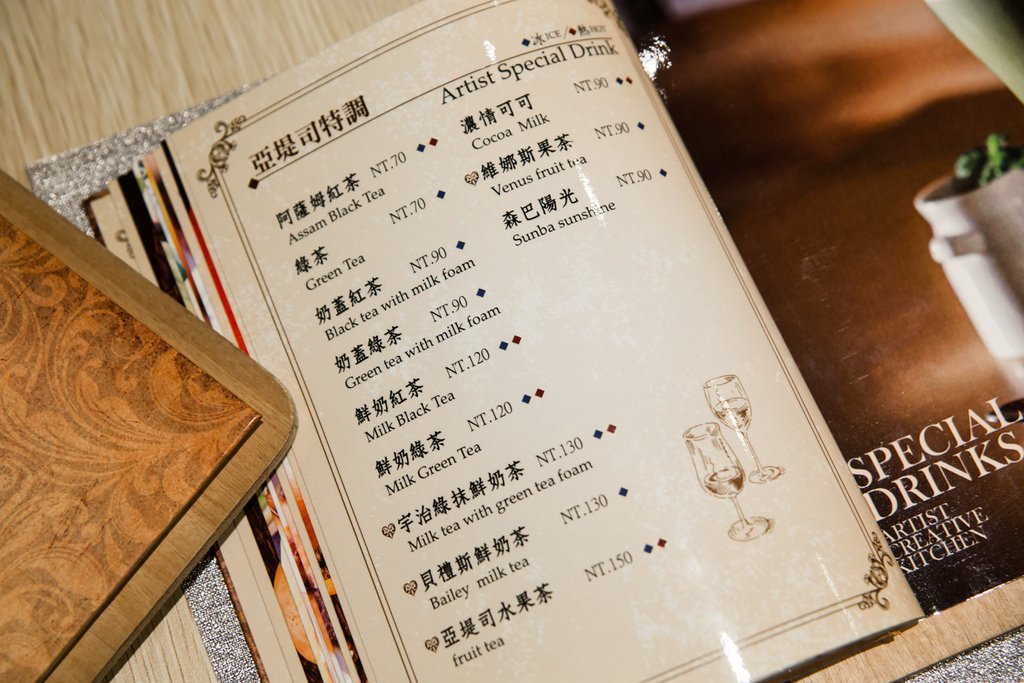 ◆冰ICE/◆熱HOT
亞堤司特調 Artist Special Drink
阿薩姆紅茶 NT.70 ◆◆
Assam Black Tea
綠茶 NT.70 ◆
Green Tea
奶蓋紅茶 NT.90 ◆
Black tea with milk foam
奶蓋綠茶 NT.90 ◆
Green tea with milk foam
鮮奶紅茶 NT.120 ◆◆
Milk Black Tea
鮮奶綠茶 NT.120 ◆◆
Milk Green Tea
宇治綠抹鮮奶茶 NT.130 ◆◆
Milk tea with green tea foam
貝禮斯鮮奶茶 NT.130 ◆
Bailey milk tea
亞堤司水果茶 NT.150 ◆◆
fruit tea
濃情可可 NT.90 ◆◆
Cocoa Milk
維娜斯果茶 NT.90 ◆
Venus fruit tea
森巴陽光 NT.90 ◆
Sunba sunshine
SPECIAL
DRINKS
ARTIST
CREATIVE
KITCHEN